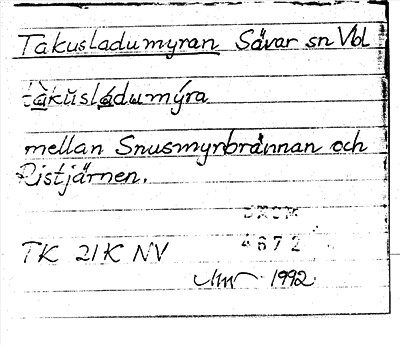 Takusladumyran Sävar sn Vbl
tàkŭsládumýra
mellan Snusmyrbrännan och
Ristjärnen.
DAUM
4672
TK 21K NV
1992